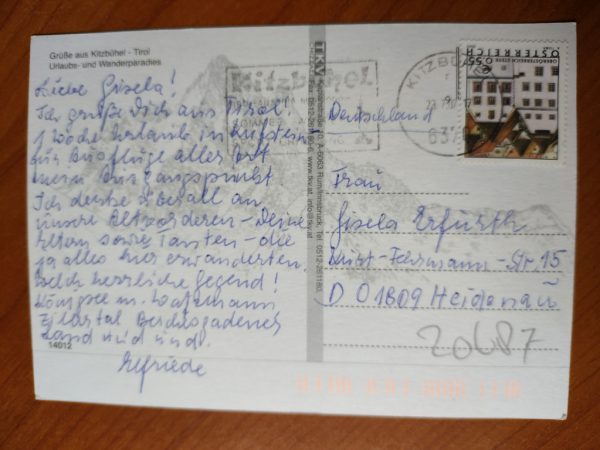 Grüße aus Kitzbühel - Tirol
Urlaubs- und Wanderparadies
Liebe Gisela!
Ich grüße Dich aus Tirol!
1 Woche Urlaub in Kufstein
für Ausflüge aller Art
Ausgangspunkt
Ich denke überall an
unsere Altvorderen - Deine
Eltern sowie Tanten - die
ja alles hier erwanderten.
Welch herrliche Gegend!
Königsee m. Watzmann
Zillertal, Berchtesgadener
Land u.u.
Elfriede
14012
TKV
A-6063 Rum/Innsbruck, Tel. 0512-261180,
www.tkv.at, info@tkv.at
Kitzbühel
SOMMER
KITZBÜHEL
637
0,55€
ÖSTERREICH
Deutschland
Frau
Gisela Erfurth
Kurt-Fehrmann-Str. 15
D 01809 Heidenau
20687